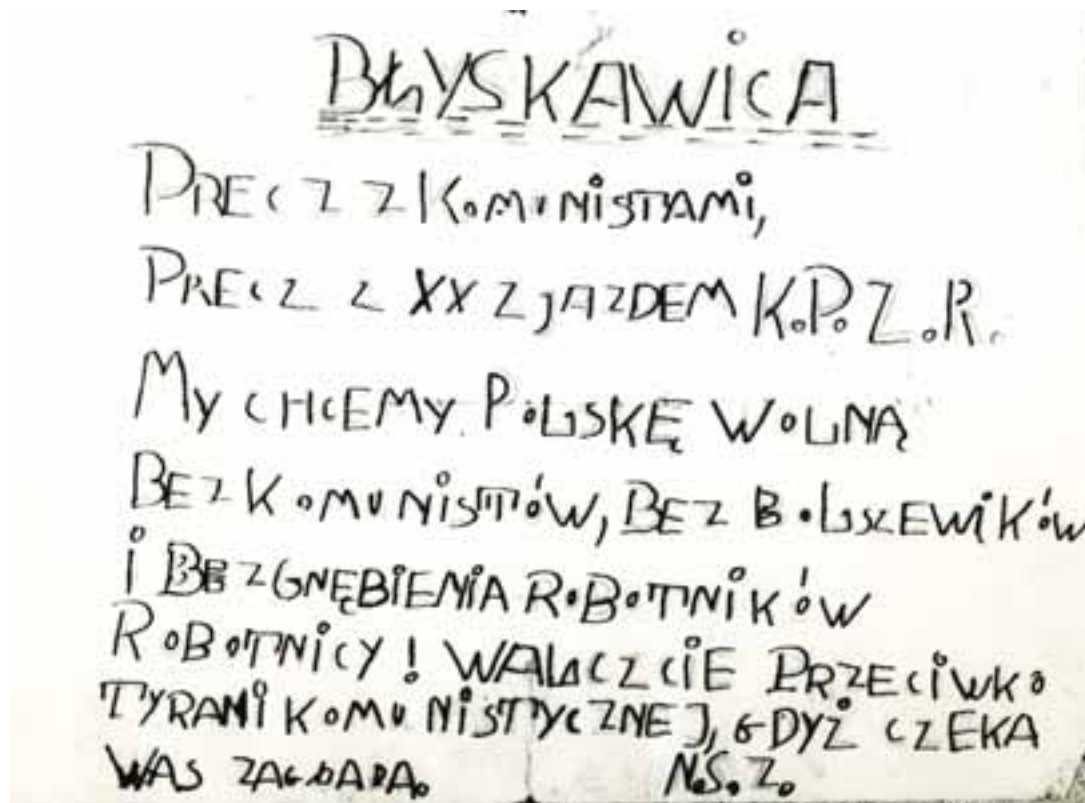 BŁYSKAWICA
PRECZ Z KOMUNISTAMI,
PRECZ Z XX ZJAZDEM K.P.Z.R.
MY CHCEMY POLSKĘ WOLNĄ
BEZ KOMUNISTÓW, BEZ BOLSZEWIKÓW
I BEZ GNĘBIENIA ROBOTNIKÓW
ROBOTNICY! WALCZCIE PRZECIWKO
TYRANI KOMUNISTYCZNEJ, GDYŻ CZEKA
WAS ZAGŁADA. N.S.Z.